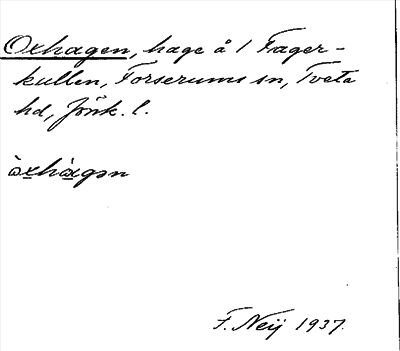 Oxhagen, hage å 1 Fager-
kullen, Forserums sn, Tveta
hd, Jönk. l.
òxhàgən
F. Neij 1937.